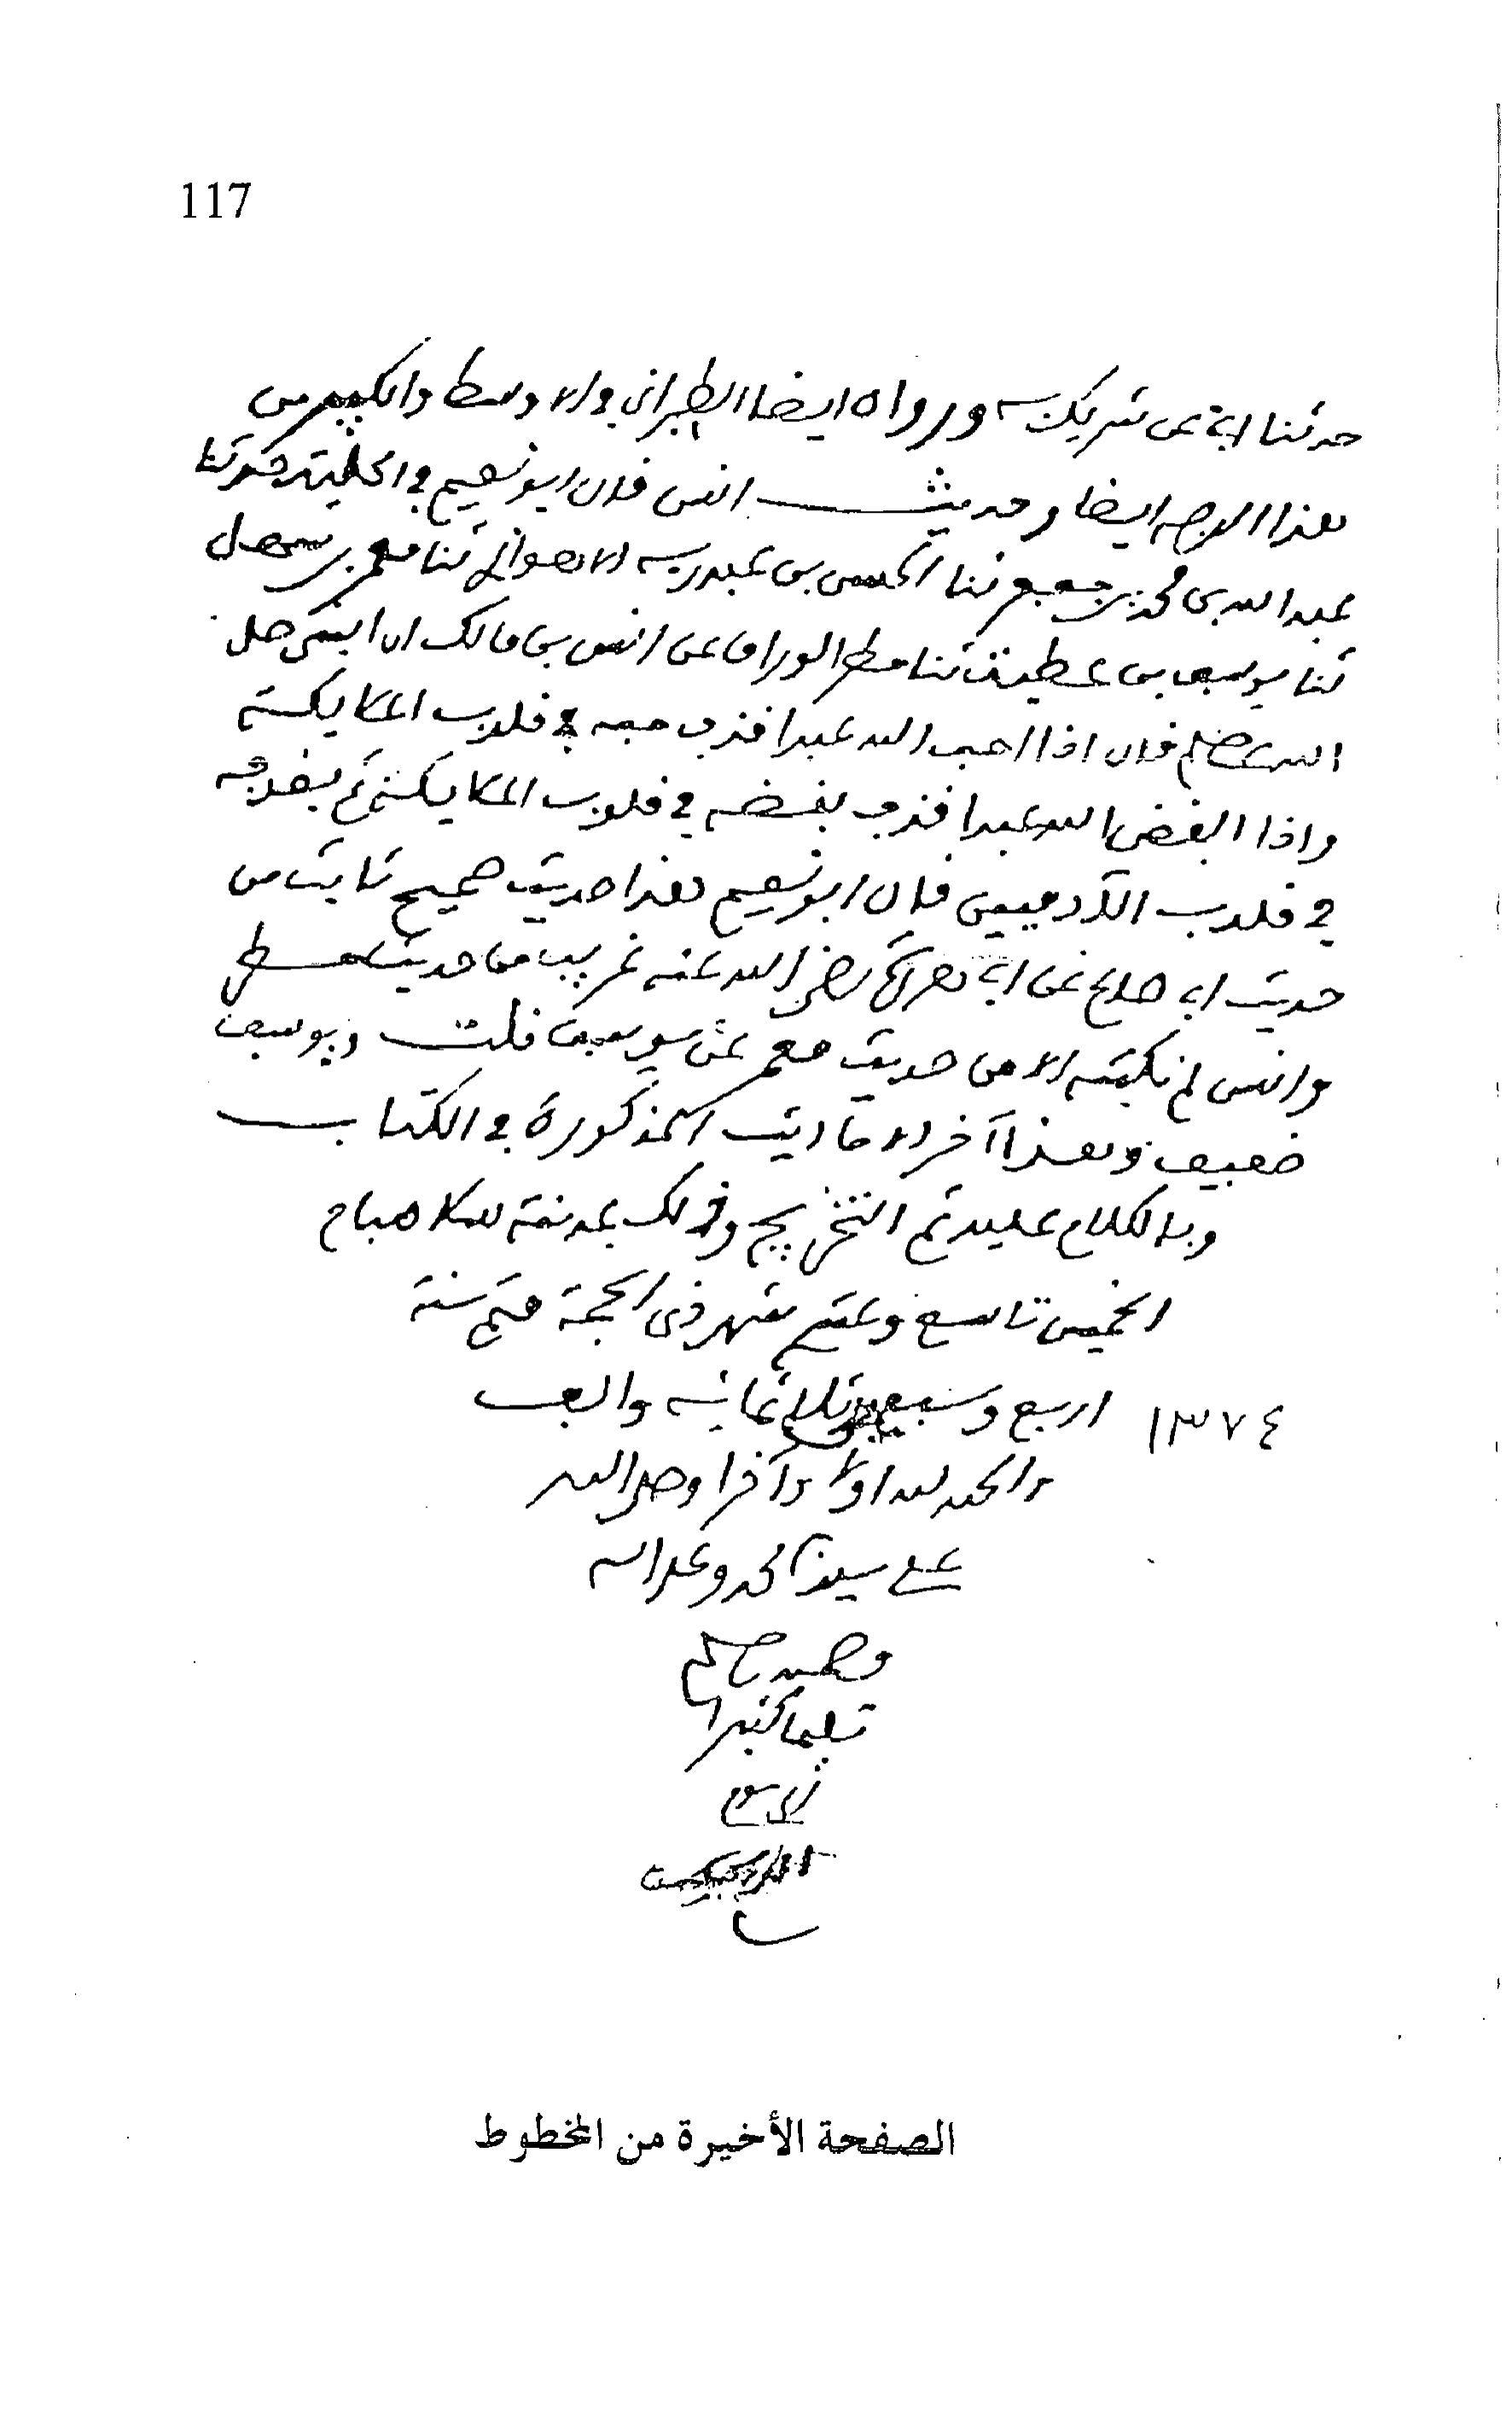 117
حدثنا ابي عن شريك به ورواه ايضا الطبراني في الاوسط والكبير من
هذا الوجه ايضا وحديث انس قال ابو نعيم في الحلية حدثنا
عبد الله بن محمد بن جعفر ثنا الحسن بن عبد ربه الاهوازي ثنا معمر بن سهل
ثنا يوسف بن عطية ثنا مطر الوراق عن انس بن مالك ان النبي صلى
الله عليه وسلم قال اذا احب الله عبدا قذف حبه في قلوب الملايكة
واذا ابغض الله عبدا قذف بغضه في قلوب الملايكة ثم يقذفه
في قلوب الآدميين قال ابو نعيم هذا حديث صحيح ثابت من
حديث ابي صالح عن ابي هريرة رضي الله عنه غريب من حديث مطر
وانس لم نكتبه الا من حديث معمر عن يوسف قلت ويوسف
ضعيف وهذا آخر الاحاديث المذكورة في الكتاب
وبالكلام عليه تم التخريج وذلك بمدينة سلا صباح
الخميس تاسع وعشري شهر ذي الحجة متم سنة
١٣٧٤ اربع وسبعين وثلاثمائة والف
والحمد لله اولا وآخرا وصلى الله
على سيدنا محمد وعلى اله
وصحبه وسلم
تسليما كثيرا
الصفحة الأخيرة من المخطوط